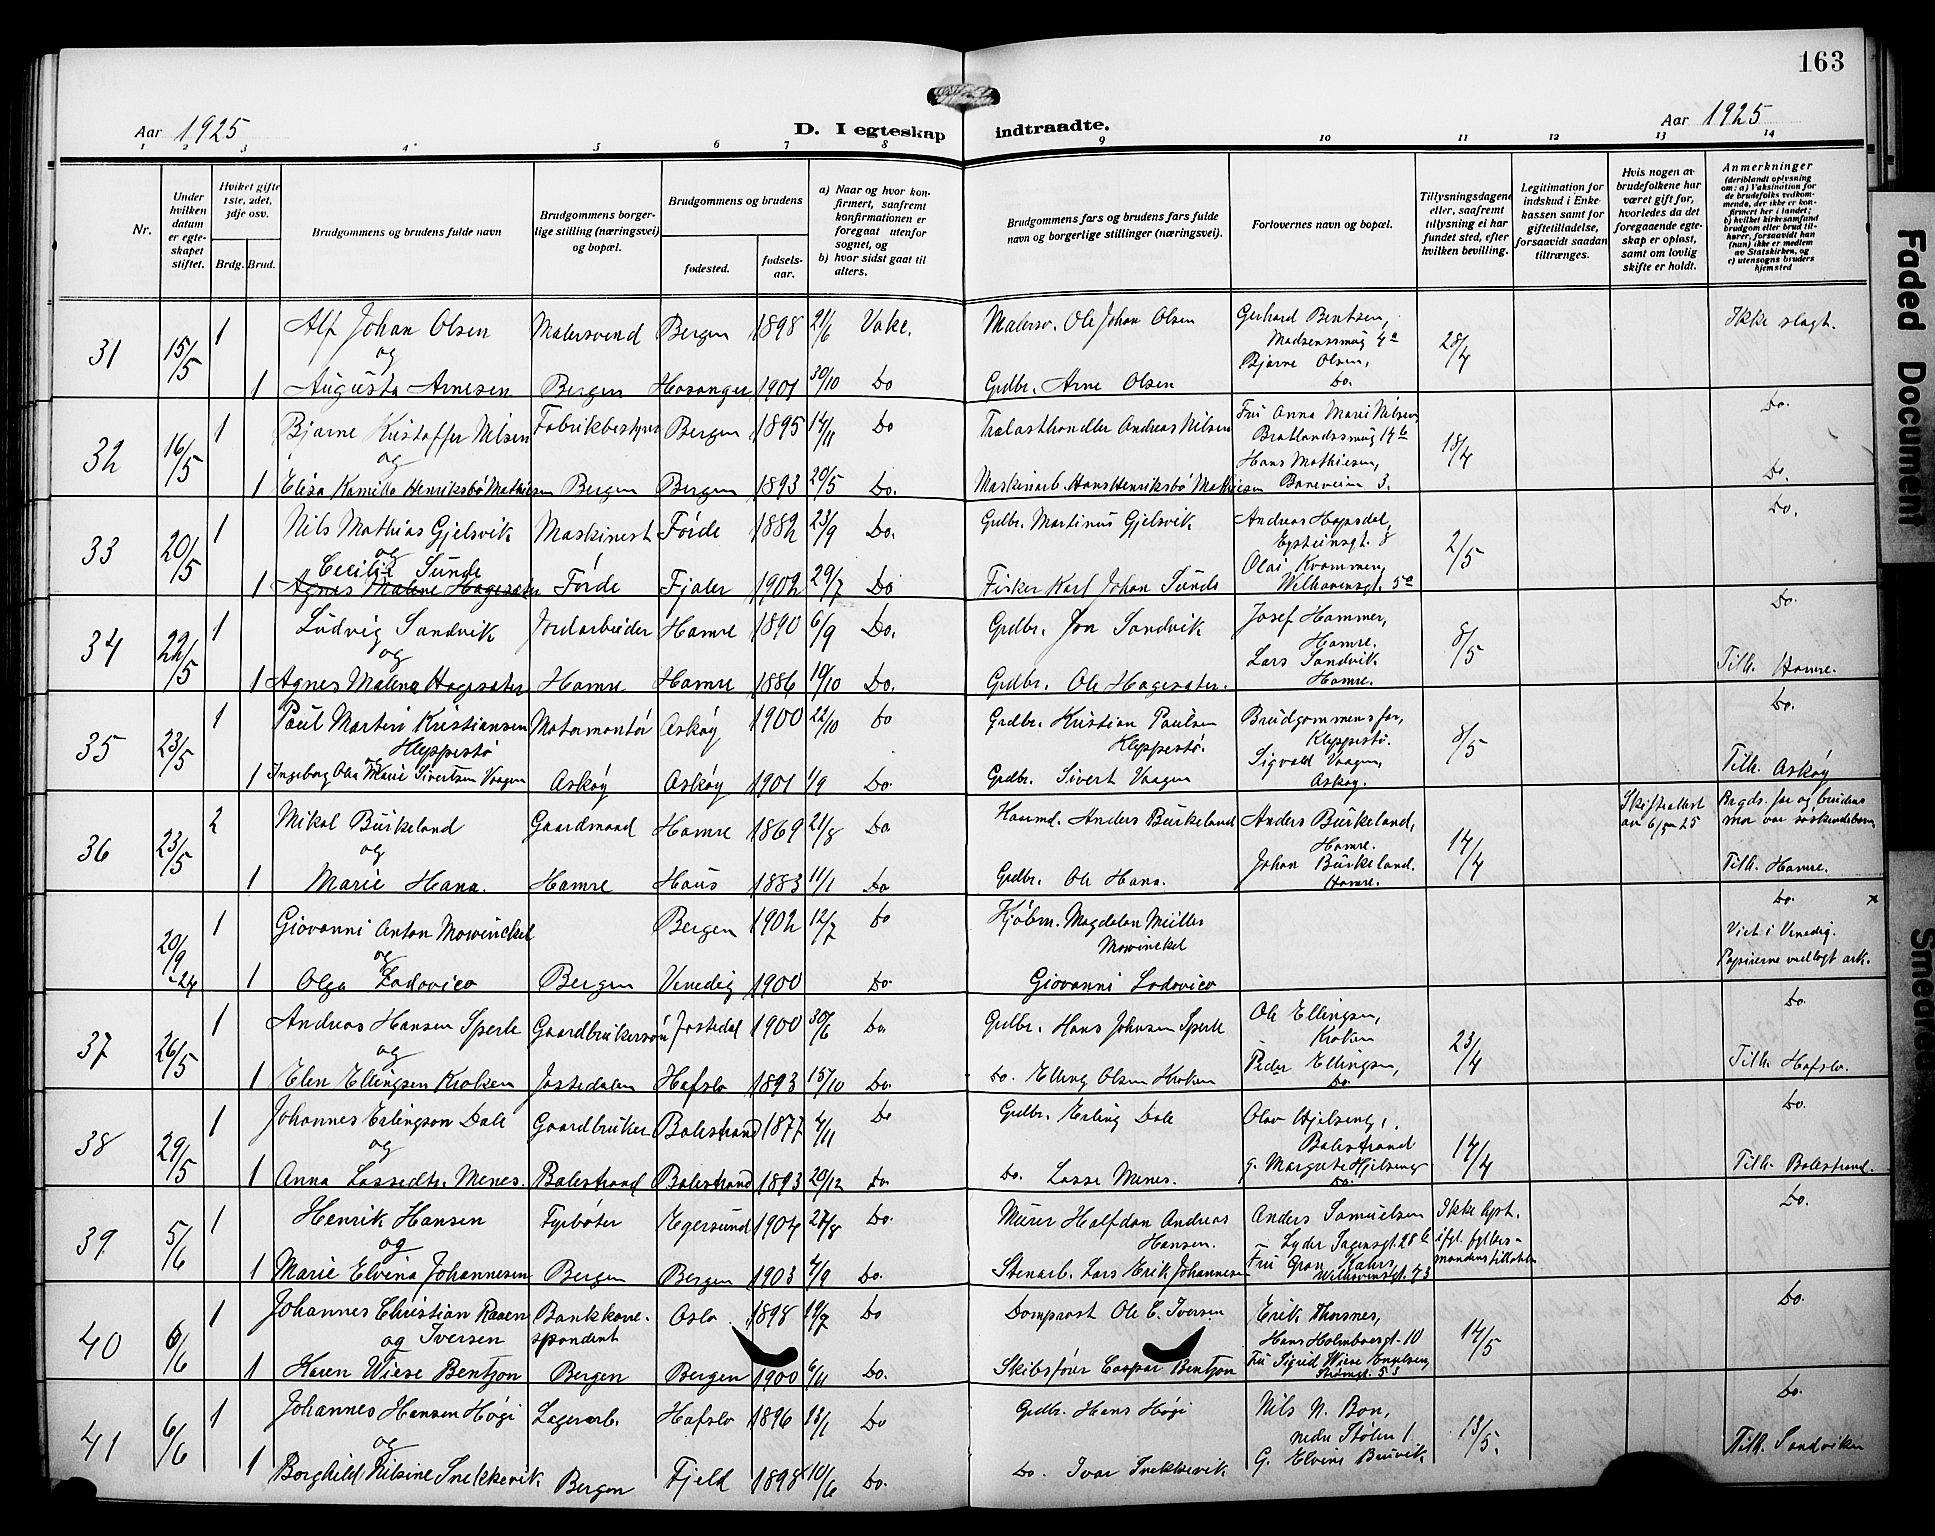 163
Aar 1925
D. I egteskap indtraadte.
Aar 1925
1 2 3 4 5 6 7 8 9 10 11 12 13 14
Nr.
Under hvilken datum er egteskapet stiftet.
Hvilket gifte 1ste, 2det, 3dje osv.
Brdg. Brud.
Brudgommens og brudens fulde navn
Brudgommens borgerlige stilling (næringsvei) og bopæl.
Brudgommens og brudens
fødested.
fødselsaar.
a) Naar og hvor konfirmert, saafremt konfirmationen er foregaat utenfor sognet, og
b) hvor sidst gaat til alters.
Brudgommens fars og brudens fars fulde navn og borgerlige stillinger (næringsvei).
Forlovernes navn og bopæl.
Tillysningsdagene eller, saafremt tillysning ei har fundet sted, efter hvilken bevilling.
Legitimation for indskud i Enkekassen samt for giftetilladelse, forsaavidt saadan tiltrænges.
Hvis nogen av brudefolkene har været gift før, hvorledes da det foregaaende egteskap er opløst, samt om lovlig skifte er holdt.
Anmerkninger
(deriblandt oplysning om: a) Vaksination for de brudefolks vedkommende, der ikke er konfirmert her i landet; b) hvilket kirkesamfund brudgom eller brud tilhører, forsaavidt han (hun) ikke er medlem av Statskirken, og c) utensogns bruders hjemsted
31 15/5 1 Alf Johan Olsen Malersvend Bergen 1898 21/6 Vake. Malersv. Ole Johan Olsen Gerhard Bentsen, Madsenssmug 4a 28/4 Ikke slegt.
og Bjarne Olsen,
1 Augusta Arnesen Bergen Hosanger 1901 30/10 Do Grdbr. Arne Olsen Do.
32 16/5 1 Bjarne Kristoffer Nilsen Fabrikbestyrer Bergen 1895 14/11 Do Trælasthandler Andreas Nilsen Fru Anna Marie Nilsen, Bratlandssmug 14b 18/4 Do.
og Hans Mathiesen,
1 Elisa Kamilla Henriksbø Mathiesen Bergen Bergen 1893 20/5 Do. Maskinarb. Hans Henriksbø Mathiesen Baneveien 3. Do.
33 20/5 1 Nils Mathias Gjelsvik Maskinist Førde 1882 23/9 Do. Grdbr. Martinus Gjelsvik Andreas Hopsdal, Eysteinsgt. 8 2/5 Do.
og Olai Kvammen,
Cecilie Sunde
1 Agnes Malene Hagesæter Førde Fjaler 1902 29/7 Do Fisker Karl Johan Sunde Welhavensgt. 5a
34 22/5 1 Ludvig Sandvik Jordarbeider Hamre 1890 6/9 Do. Grdbr. Jon Sandvik Josef Hammer, Hamre. 8/5 Do.
og Lars Sandvik
1 Agnes Malena Hagesæter Hamre Hamre 1886 10/10 Do. Grdbr. Ole Hagesæter. Hamre. Tilh. Hamre.
35 23/5 1 Paul Martin Kristiansen Motormontør Askøy 1900 22/10 Do Grdbr. Kristian Paulsen Brudgommens far, 8/5 Do.
Kleppestø Kleppestø. Kleppestø.
og Sigvald Vaagen,
1 Ingeborg Olia Marie Sivertsen Vaagen Askøy Askøy 1901 1/9 Do. Grdbr. Sivert Vaagen Askøy. Tilh. Askøy
36 23/5 2 Mikal Burkeland Gaardmand Hamre 1869 21/8 Do Haarmd. Anders Burkeland Anders Burkeland, Hamre. 14/4 Skifteattest av 25 Brgds. far og brudens mor var søskendebarn
og Johan Burkeland.
1 Marie Hana. Hamre Haus 1883 11/1 Do Grdbr. Ole Hana. Hamre. Tilh. Hamre.
20/9 -24 1 Giovanni Anton Mowinckel Bergen 1902 12/7 Do Kjøbm. Magdalon Müller Mowinckel Do. x
og Viet i Venedig.
1 Olga Lodovico Bergen Venedig 1900 Do. Giovanni Lodovico Papirerne vedlagt ark.
37 26/5 1 Andreas Hansen Sperle Gaardbrukersøn Jostedal 1900 30/6 Do. Grdbr. Hans Johnsen Sperle Ole Ellingsen, Kroken 23/4 Do.
og Peder Ellingsen,
1 Elen Ellingsen Kroken Jostedalen Hafslo 1893 15/10 Do. Do. Elling Olsen Kroken Do. Tilh. Hafslo.
38 29/5 1 Johannes Erlingson Dale Gaardbruker Balestrand 1877 4/11 Do Grdbr. Erling Dale Olav Hjelseng, Balestrand 14/4 Do.
og g. Margrete Hjelseng
1 Anna Lassedtr. Menes. Balestrand Balestrand 1893 20/12 Do. Do. Lasse Menes. Do. Tilh. Balestrand.
39 5/6 1 Henrik Hansen Fyrbøter Egersund 1904 27/8 Do. Murer Halfdan Andreas Hansen. Anders Samuelsen Lyder Sagensgt. 28b Ikke lyst. ifgl. fylkesmandens tillatelse Do.
og Fru Gran Kahrs
1 Marie Elvina Johannesen Bergen Bergen 1903 4/9 Do. Stenarb. Lars Erik Johannesen Welhavensgt. 73
40 6/6 1 Johannes Christian Raaen Iversen Bankkorrespondent Oslo 1898 19/7 Do Domprost Ole C. Iversen Erik Thorsnes, Hans Holmboesgt. 10 14/5 Do.
og Fru Sigrid Wiese Engelsen,
1 Karen Wiese Bentzon Bergen Bergen 1900 6/11 Do. Skibsfører Caspar Bentzon Strømgt. 53
41 6/6 1 Johannes Hansen Høgi Lagerarb. Hafslo 1896 13/1 Do Grdbr. Hans Høgi Nils N. Bon, nedre Stølen 1. 13/5. Do.
og G. Elvine Bruvik
1 Borghild Nilsine Snekkevik Bergen Fjeld 1898 10/6 Do. Do. Ivar Snekkevik Tilh. Sandviken
Faded Document
Smeared